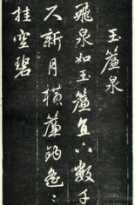 玉簾泉
飛泉如玉簾直下數千
尺新月橫簾鈎遙遙
挂空碧